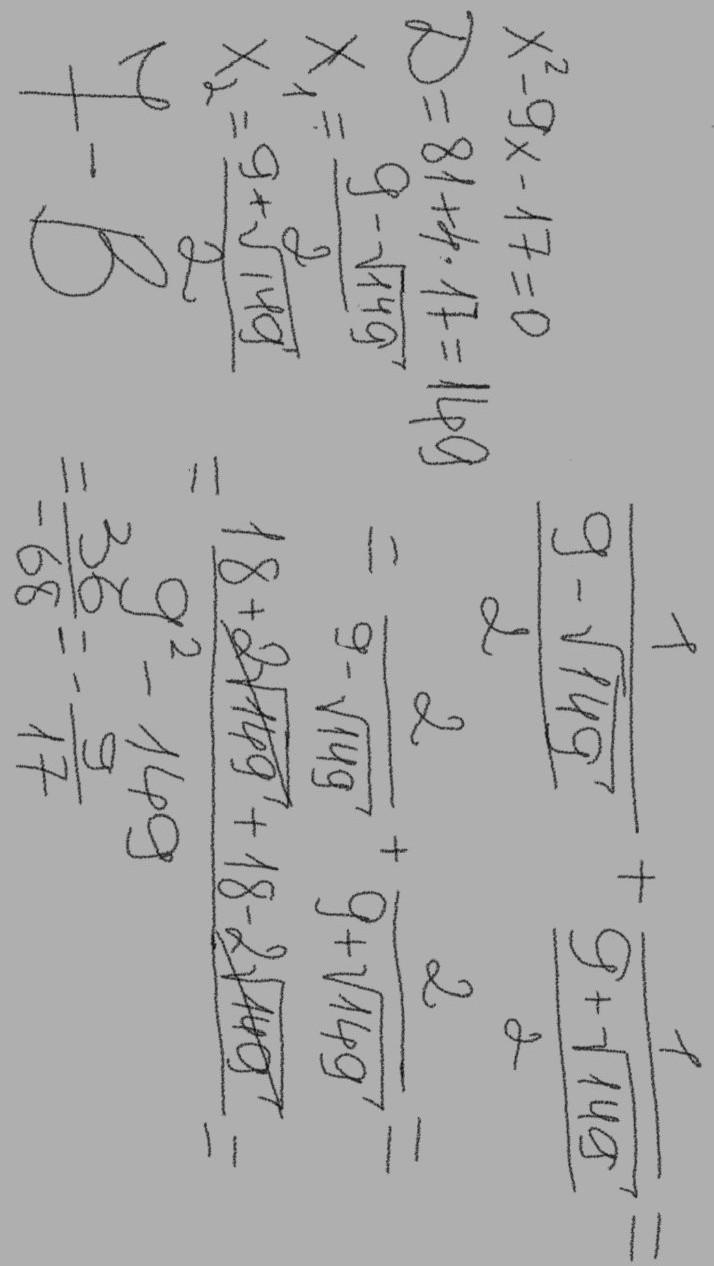 x² - 9x - 17 = 0
D = 81 + 4·17 = 149
x₁ = (9 - √149)/2
x₂ = (9 + √149)/2
7 - B
1/((9 - √149)/2) + 1/((9 + √149)/2) =
= 2/(9 - √149) + 2/(9 + √149) =
= (18 + 2√149 + 18 - 2√149)/(9² - 149) =
= 36/-68 = - 9/17